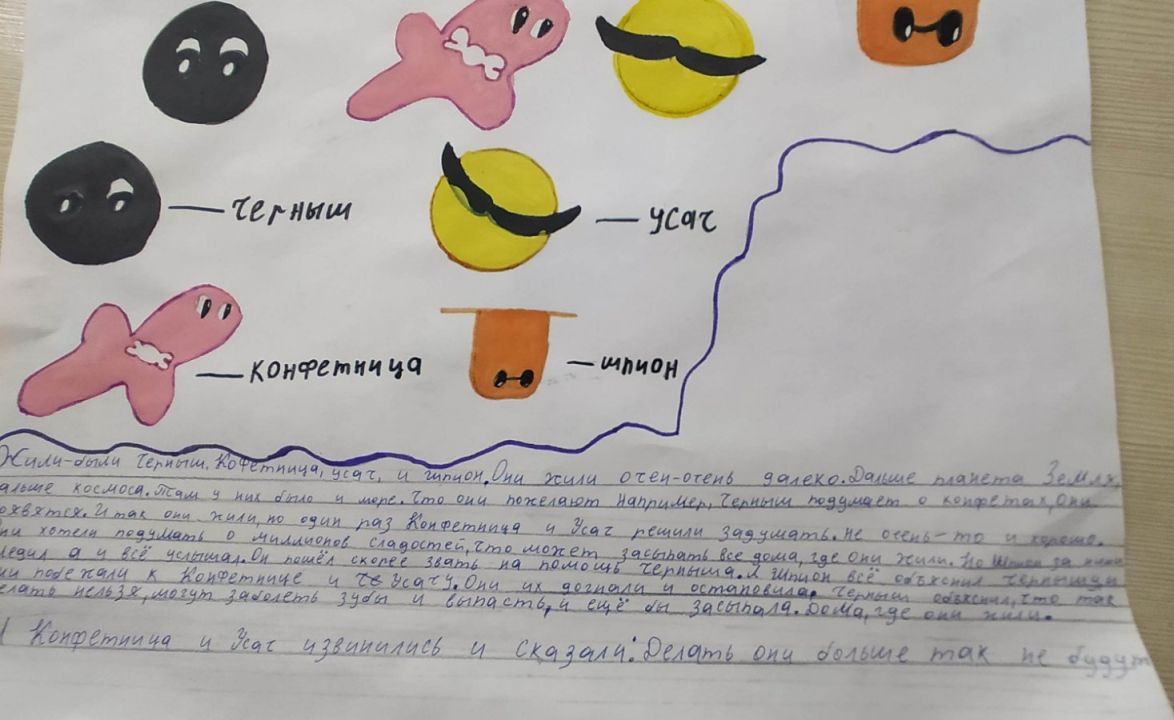 Черныш
Усач
Конфетница
шпион
Жили-были Черныш, Кофетница, усач, и шпион. Они жили очен-очень далеко. Дальше планета Земля,
альше космоса. Там у них было и море. Что они пожелают например, Черныш подумает о конфетах, Они
оявятся. И так они жили, но один раз Конфетница и Усач решили задумать. не очень-то и хорошо.
ни хотели подумать о миллионов сладостей, что может засыпать все дома, где они жили. Но Шпион за ними
ледил а и всё услышал. Он пошёл скорее звать на помощь Черныша. А шпион всё объяснил Чернышу и
ни побежали к Конфетнице и Усачу. Они их догнали и остановила, Черныш объяснил, что так
елать нельзя, могут заболеть зубы и выпасть, и ещё бы засыпала. Дома, где они жили.
Конфетница и Усач извинились и сказали: Делать они больше так не будут